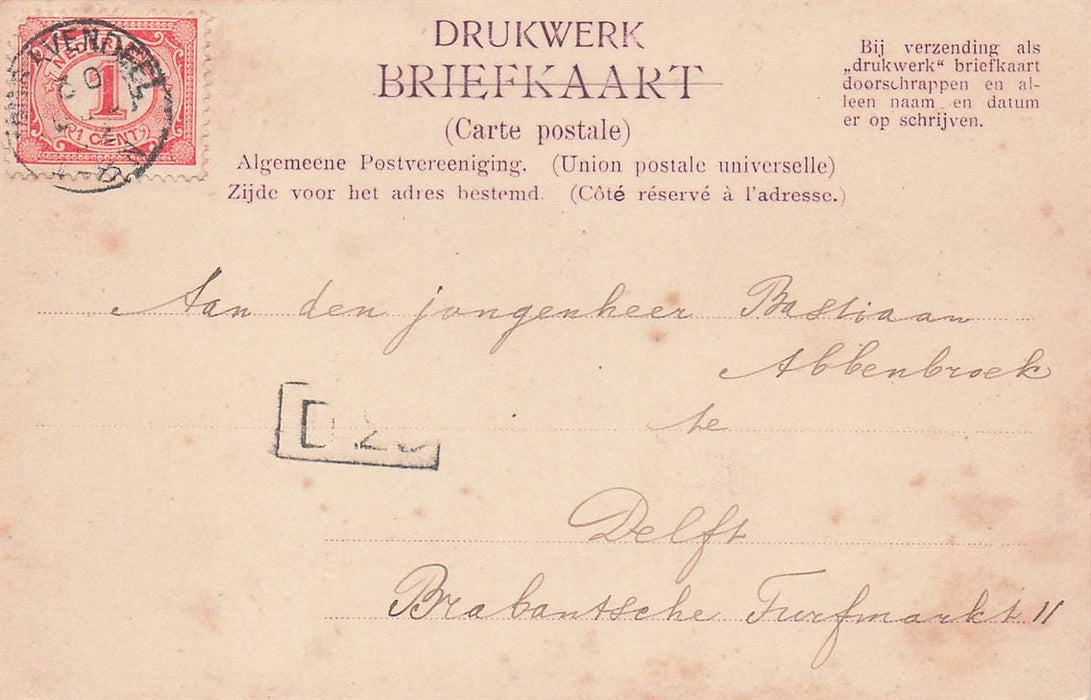 DRUKWERK
BRIEFKAART
(Carte postale)
Algemeene Postvereeniging. (Union postale universelle)
Zijde voor het adres bestemd. (Côté réservé à l'adresse.)
Bij verzending als
„drukwerk“ briefkaart
doorschrappen en al-
leen naam en datum
er op schrijven.
1
1 CENT
Aan den jongenheer Bastiaan
Abbenbroek
te
Delft
Brabantsche Turfmarkt 11